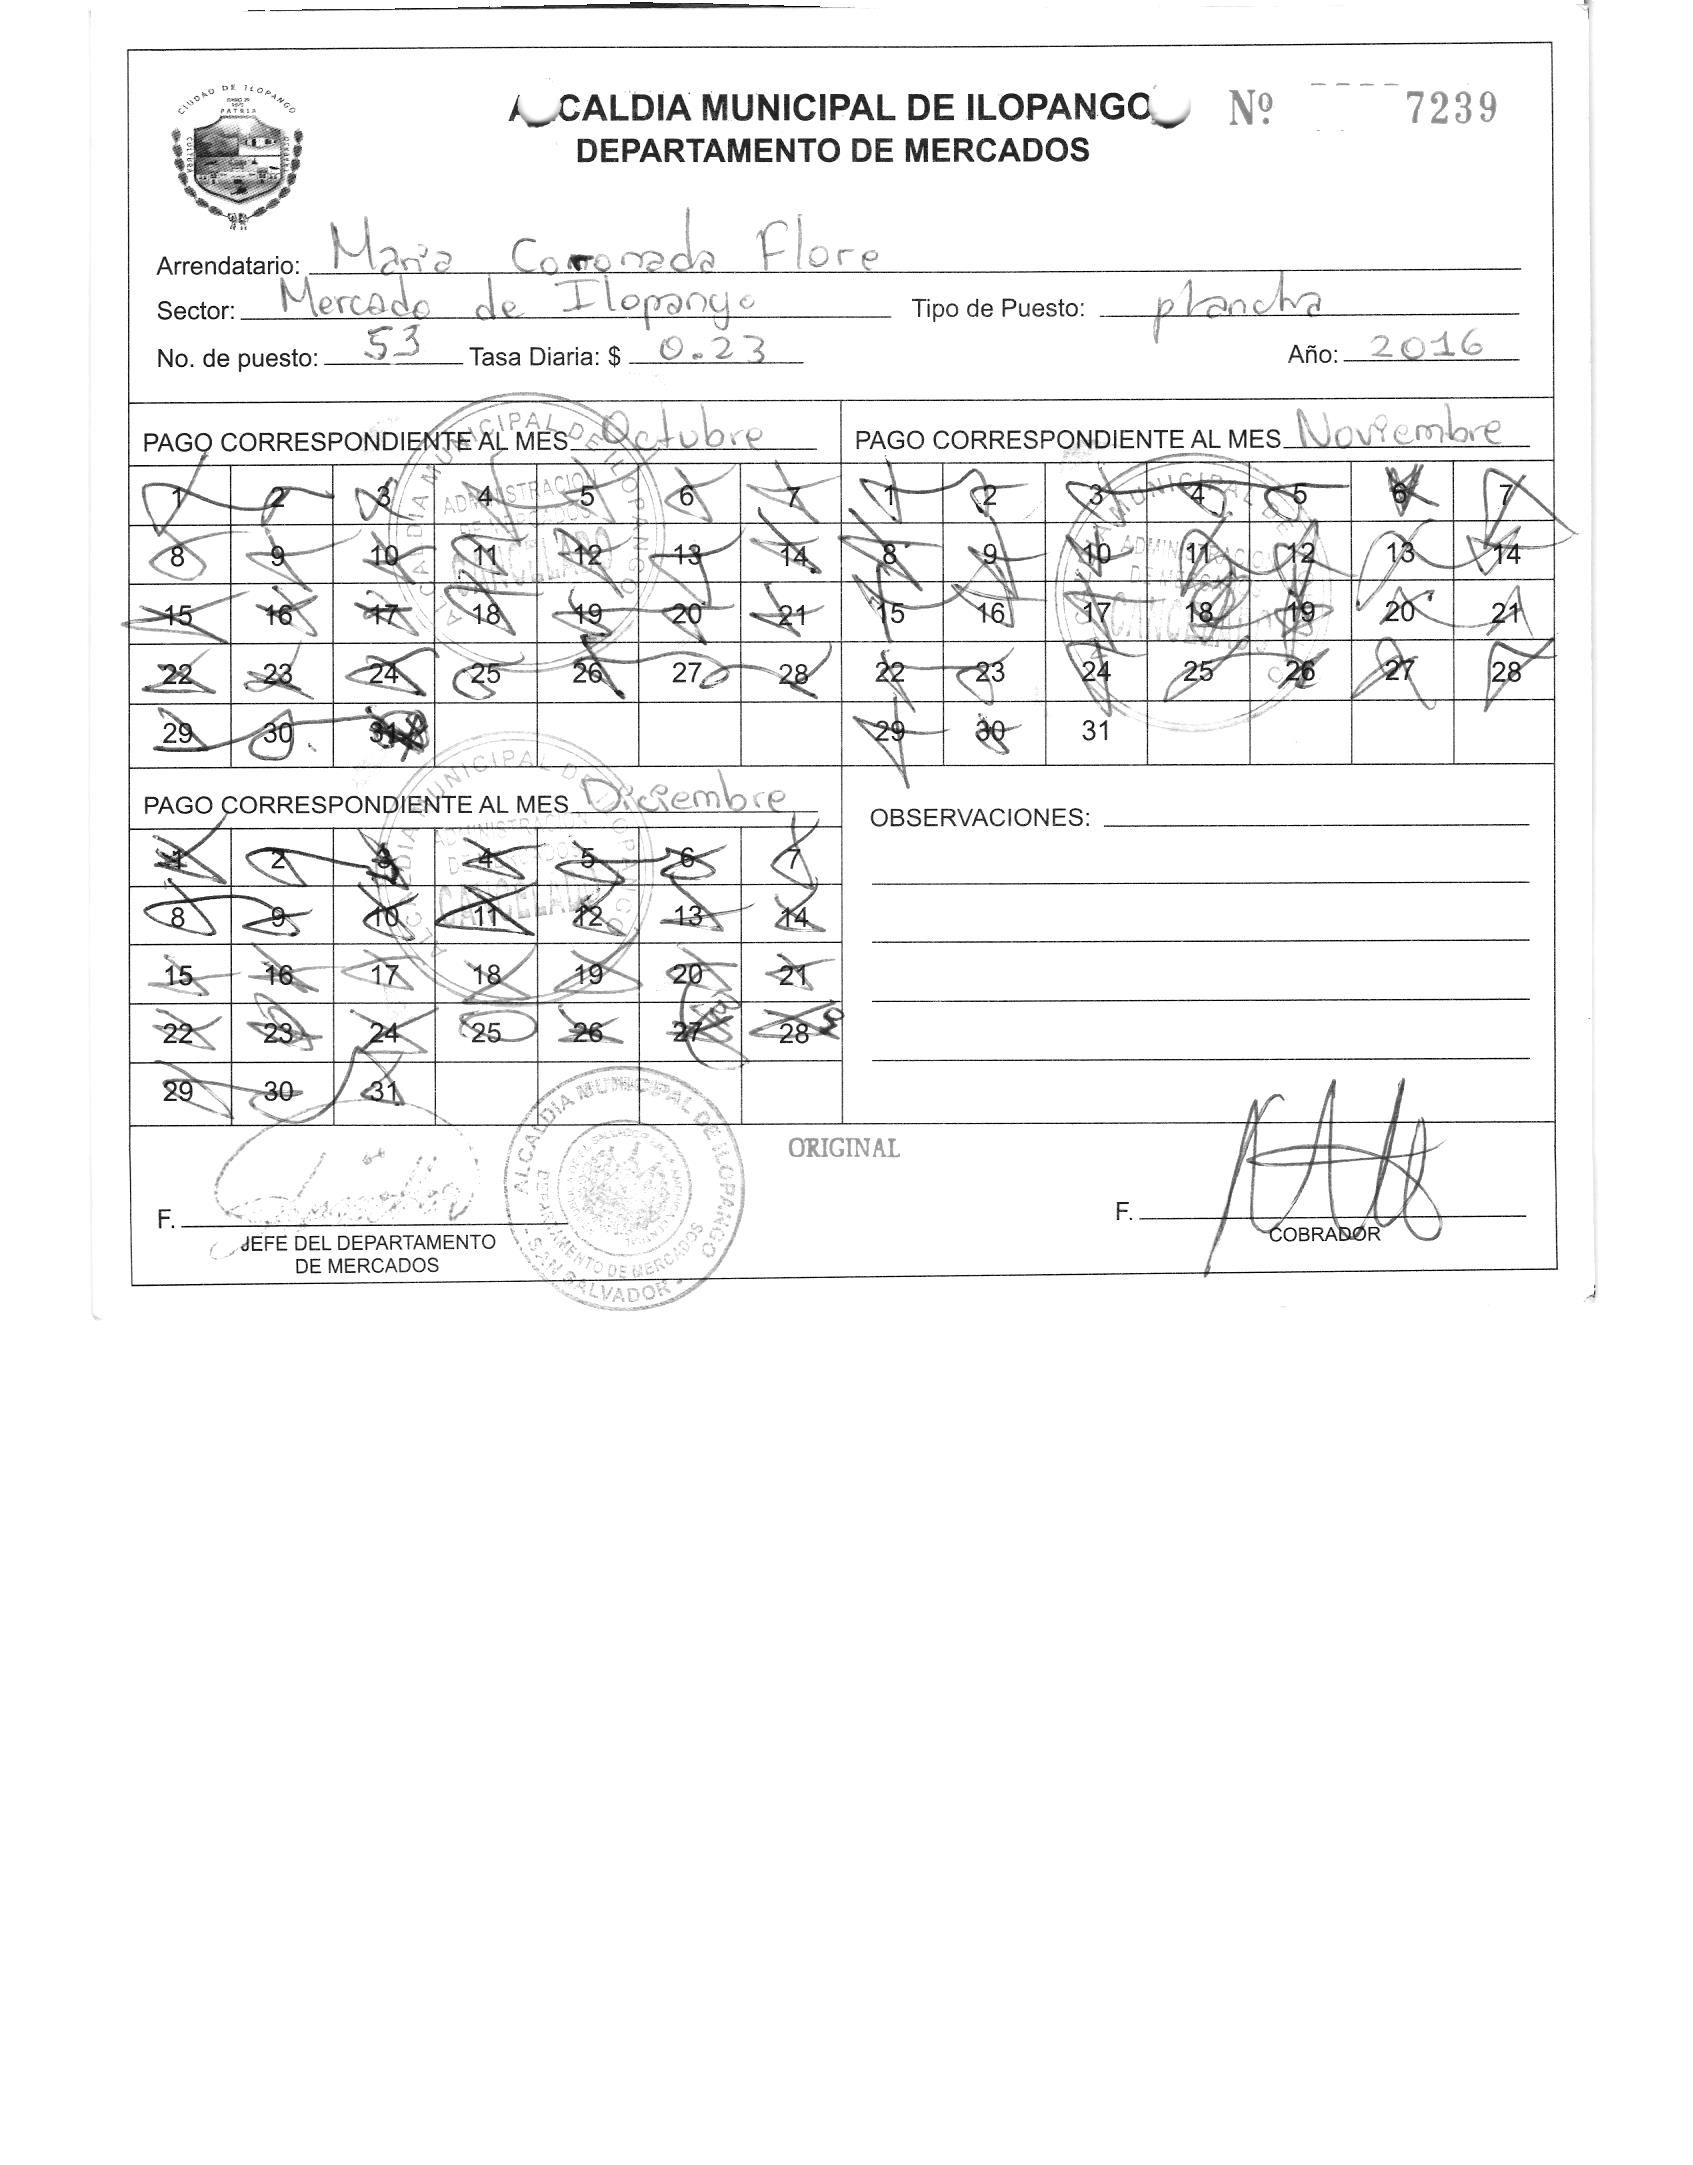 CIUDAD DE ILOPANGO
PATRIA
CULTURA
ALCALDIA MUNICIPAL DE ILOPANGO
Nº 7239
DEPARTAMENTO DE MERCADOS
Arrendatario: Maria Coronada Flore
Sector: Mercado de Ilopango Tipo de Puesto: plancha
No. de puesto: 53 Tasa Diaria: $ 0.23 Año: 2016
PAGO CORRESPONDIENTE AL MES Octubre
1 2 3 4 5 6 7
8 9 10 11 12 13 14
15 16 17 18 19 20 21
22 23 24 25 26 27 28
29 30 31
ALCALDIA MUNICIPAL DE ILOPANGO
ADMINISTRACION
DE MERCADOS
CANCELADO
PAGO CORRESPONDIENTE AL MES Noviembre
1 2 3 4 5 6 7
8 9 10 11 12 13 14
15 16 17 18 19 20 21
22 23 24 25 26 27 28
29 30 31
ADMINISTRACION
DE MERCADOS
CANCELADO
PAGO CORRESPONDIENTE AL MES Diciembre
1 2 3 4 5 6 7
8 9 10 11 12 13 14
15 16 17 18 19 20 21
22 23 24 25 26 27 28
29 30 31
ALCALDIA MUNICIPAL DE ILOPANGO
ADMINISTRACION
DE MERCADOS
CANCELADO
OBSERVACIONES:
ORIGINAL
F.
JEFE DEL DEPARTAMENTO
DE MERCADOS
ALCALDIA MUNICIPAL DE ILOPANGO
DEPARTAMENTO DE MERCADOS
- SAN SALVADOR -
F.
COBRADOR